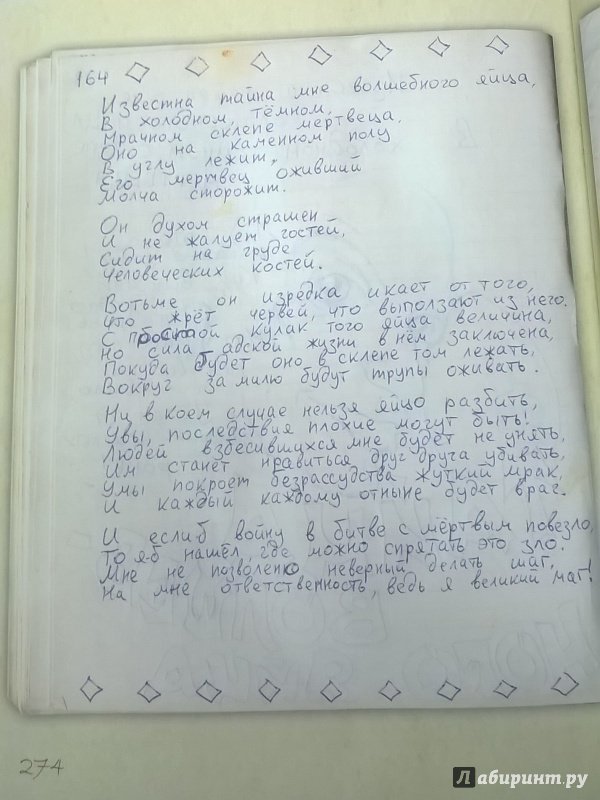 164
Известна тайна мне волшебного яйца,
В холодном, тёмном,
Мрачном склепе мертвеца,
Оно на каменном полу
В углу лежит,
Его мертвец оживший
Молча сторожит.
Он духом страшен
И не жалует гостей,
Сидит на груде
Человеческих костей.
Вотьме он изредка икает от того,
Что жрёт червей, что выползают из него.
С простой кулак того яйца величина,
Но сила адской жизни в нём заключена,
Покуда будет оно в склепе том лежать,
Вокруг за милю будут трупы оживать.
Ни в коем случае нельзя яйцо разбить,
Увы, последствия плохие могут быть!
Людей взбесившихся мне будет не унять,
Им станет нравиться друг друга убивать,
Умы покроет безрассудства жуткий мрак,
И каждый каждому отныне будет враг.
И еслиб войну в битве с мёртвым повезло,
То я-б нашёл, где можно спрятать это зло.
Мне не позволено неверный делать шаг,
На мне ответственность, ведь я великий маг!
274
Лабиринт.ру